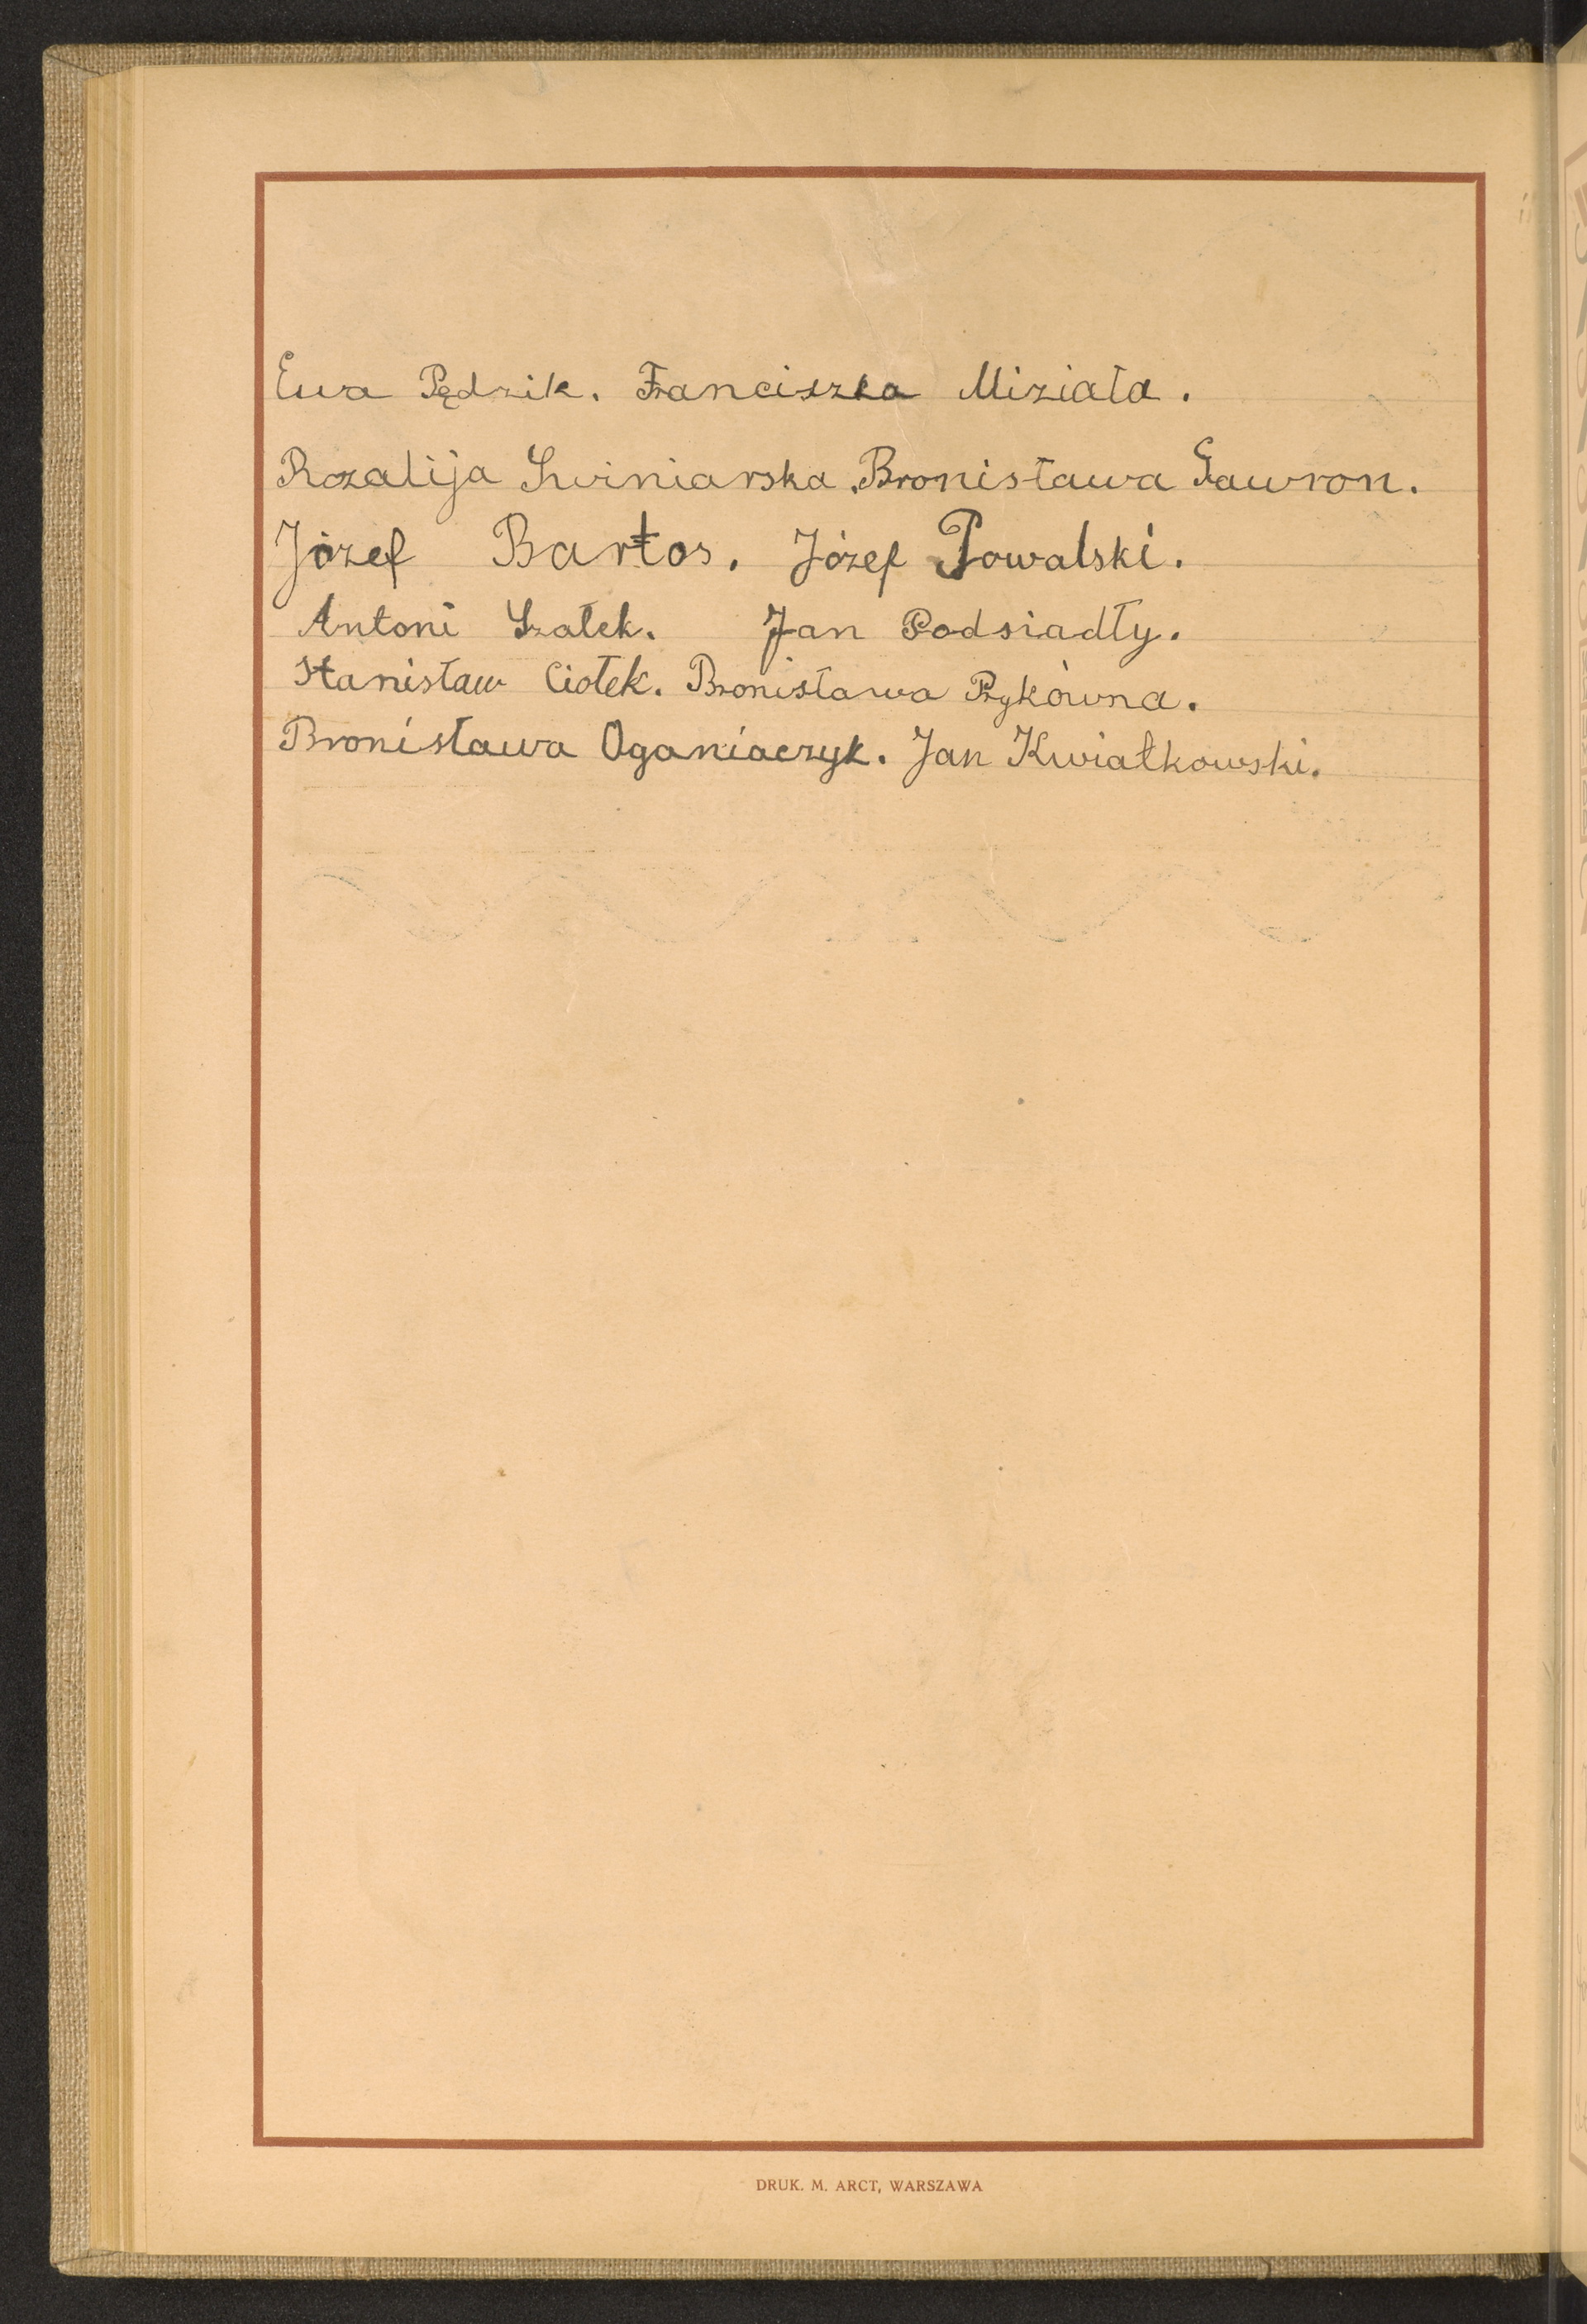 Ewa Pędzik. Franciszka Miziała.
Rozalija Świniarska. Bronisława Gawron.
Józef Bartos. Józef Powalski.
Antoni Szałek. Jan Podsiadły.
Stanisław Ciołek. Bronisława Pzykówna.
Bronisława Oganiaczyk. Jan Kwiatkowski.
DRUK. M. ARCT, WARSZAWA